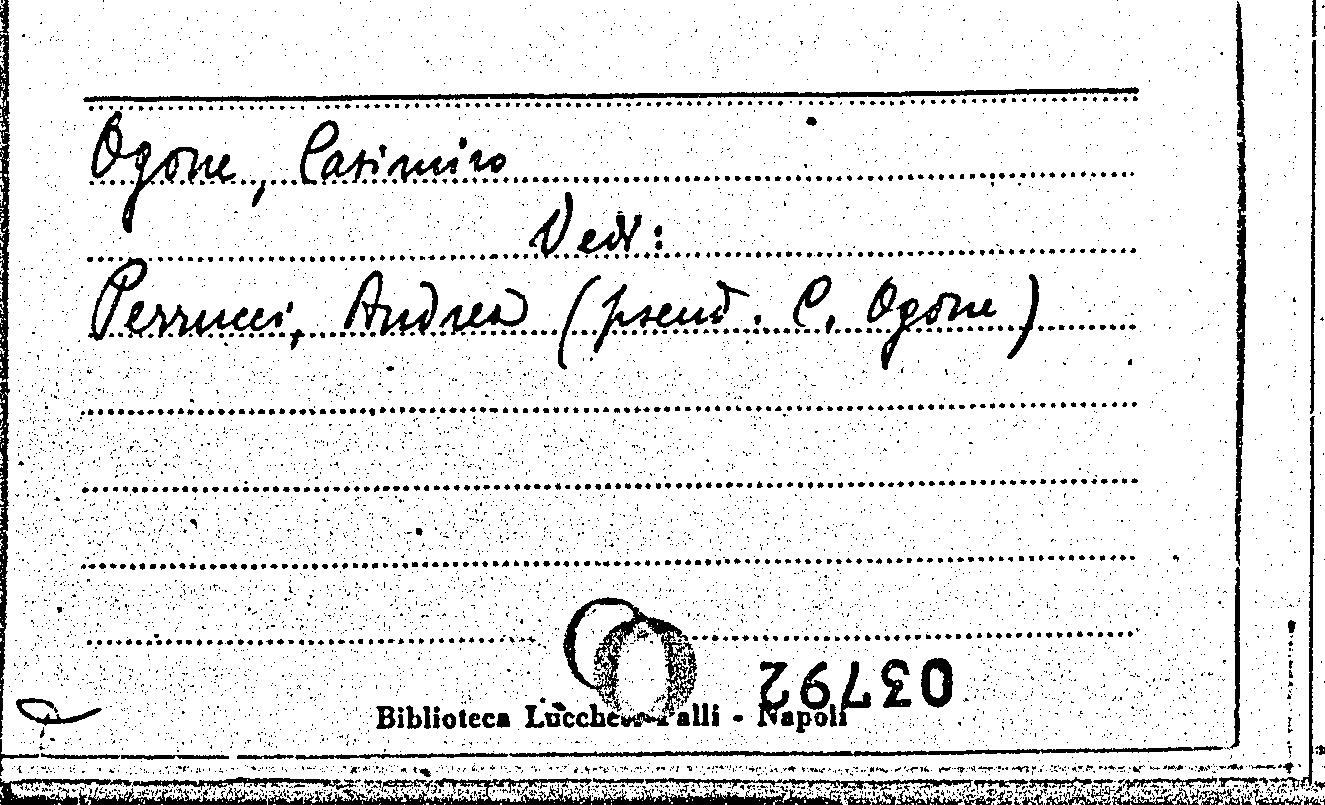 Ogone, Casimiro
Vedi:
Perrucci, Andrea (pseud. C. Ogone)
03792
Biblioteca Lucchesi-Palli - Napoli